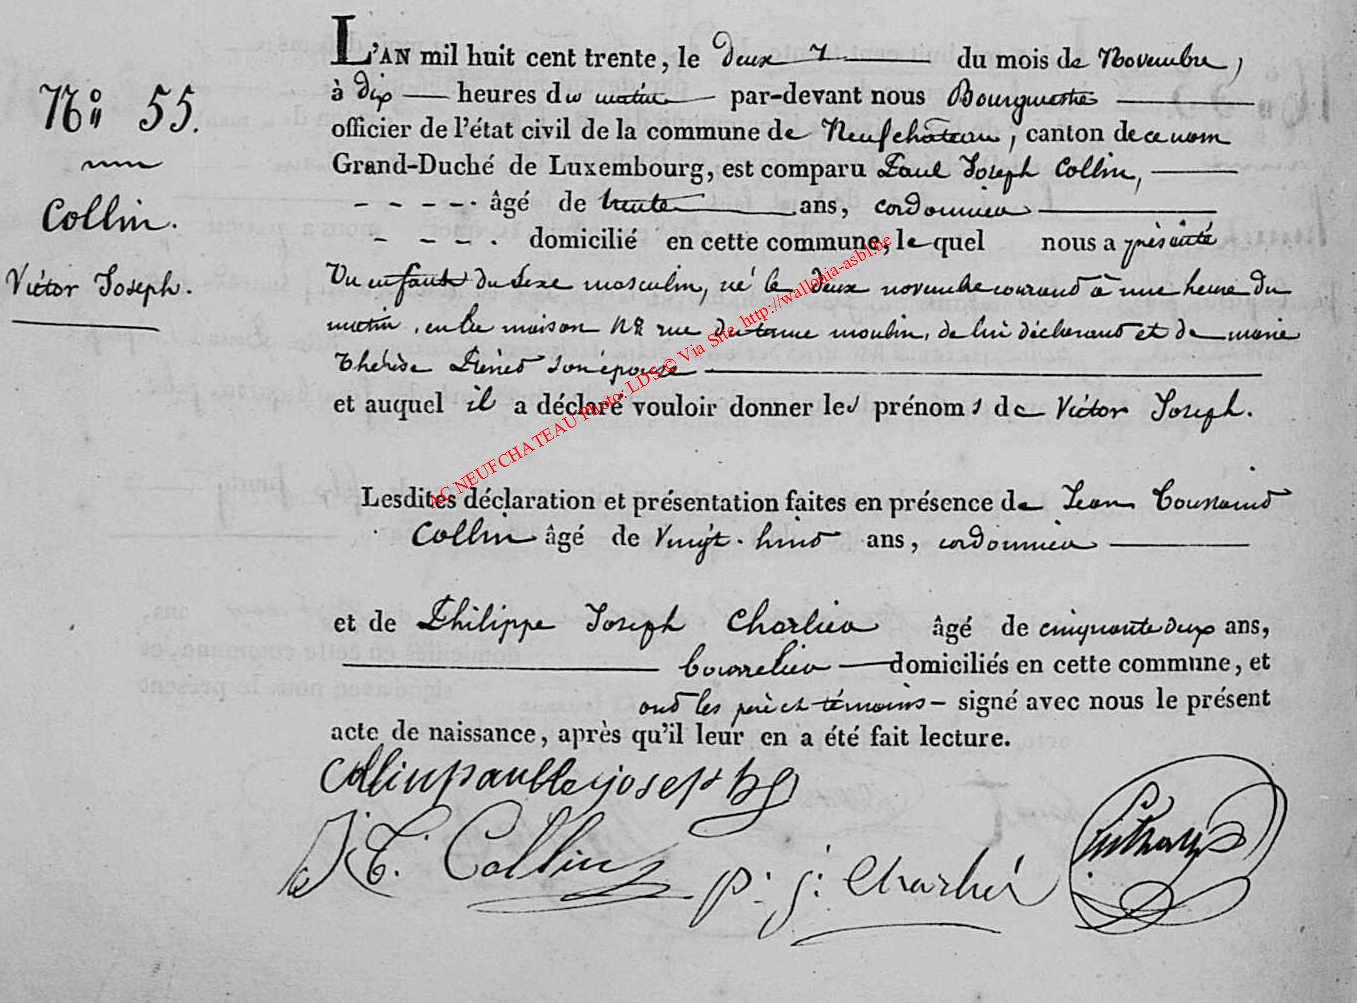 N.º 55.
Collin.
Victor Joseph.
L'AN mil huit cent trente, le deux du mois de Novembre,
à dix heures du matin par-devant nous Bourgmestre
officier de l'état civil de la commune de Neufchâteau, canton de ce nom
Grand-Duché de Luxembourg, est comparu Paul Joseph Collin,
- - - - . âgé de trente ans, cordonnier
- - - - . domicilié en cette commune, le quel nous a présenté
Un enfant du Sexe masculin, né le deux novembre courant à une heure du
matin, en la maison N.º rue du moulin, de lui déclarant et de marie
thérèse son épouse
et auquel il a déclaré vouloir donner les prénoms de Victor Joseph.
Lesdites déclaration et présentation faites en présence de Jean Toussaint
Collin âgé de Vingt-huit ans, cordonnier
et de Philippe Joseph Charlier âgé de cinquante deux ans,
bourrelier domiciliés en cette commune, et
ont les père et témoins - signé avec nous le présent
acte de naissance, après qu'il leur en a été fait lecture.
Collin paulle joseph
J. T. Collin
p. j. Charlier
AC NEUFCHATEAU Photo: LDS © Via Site http://wallonia-asbl.be